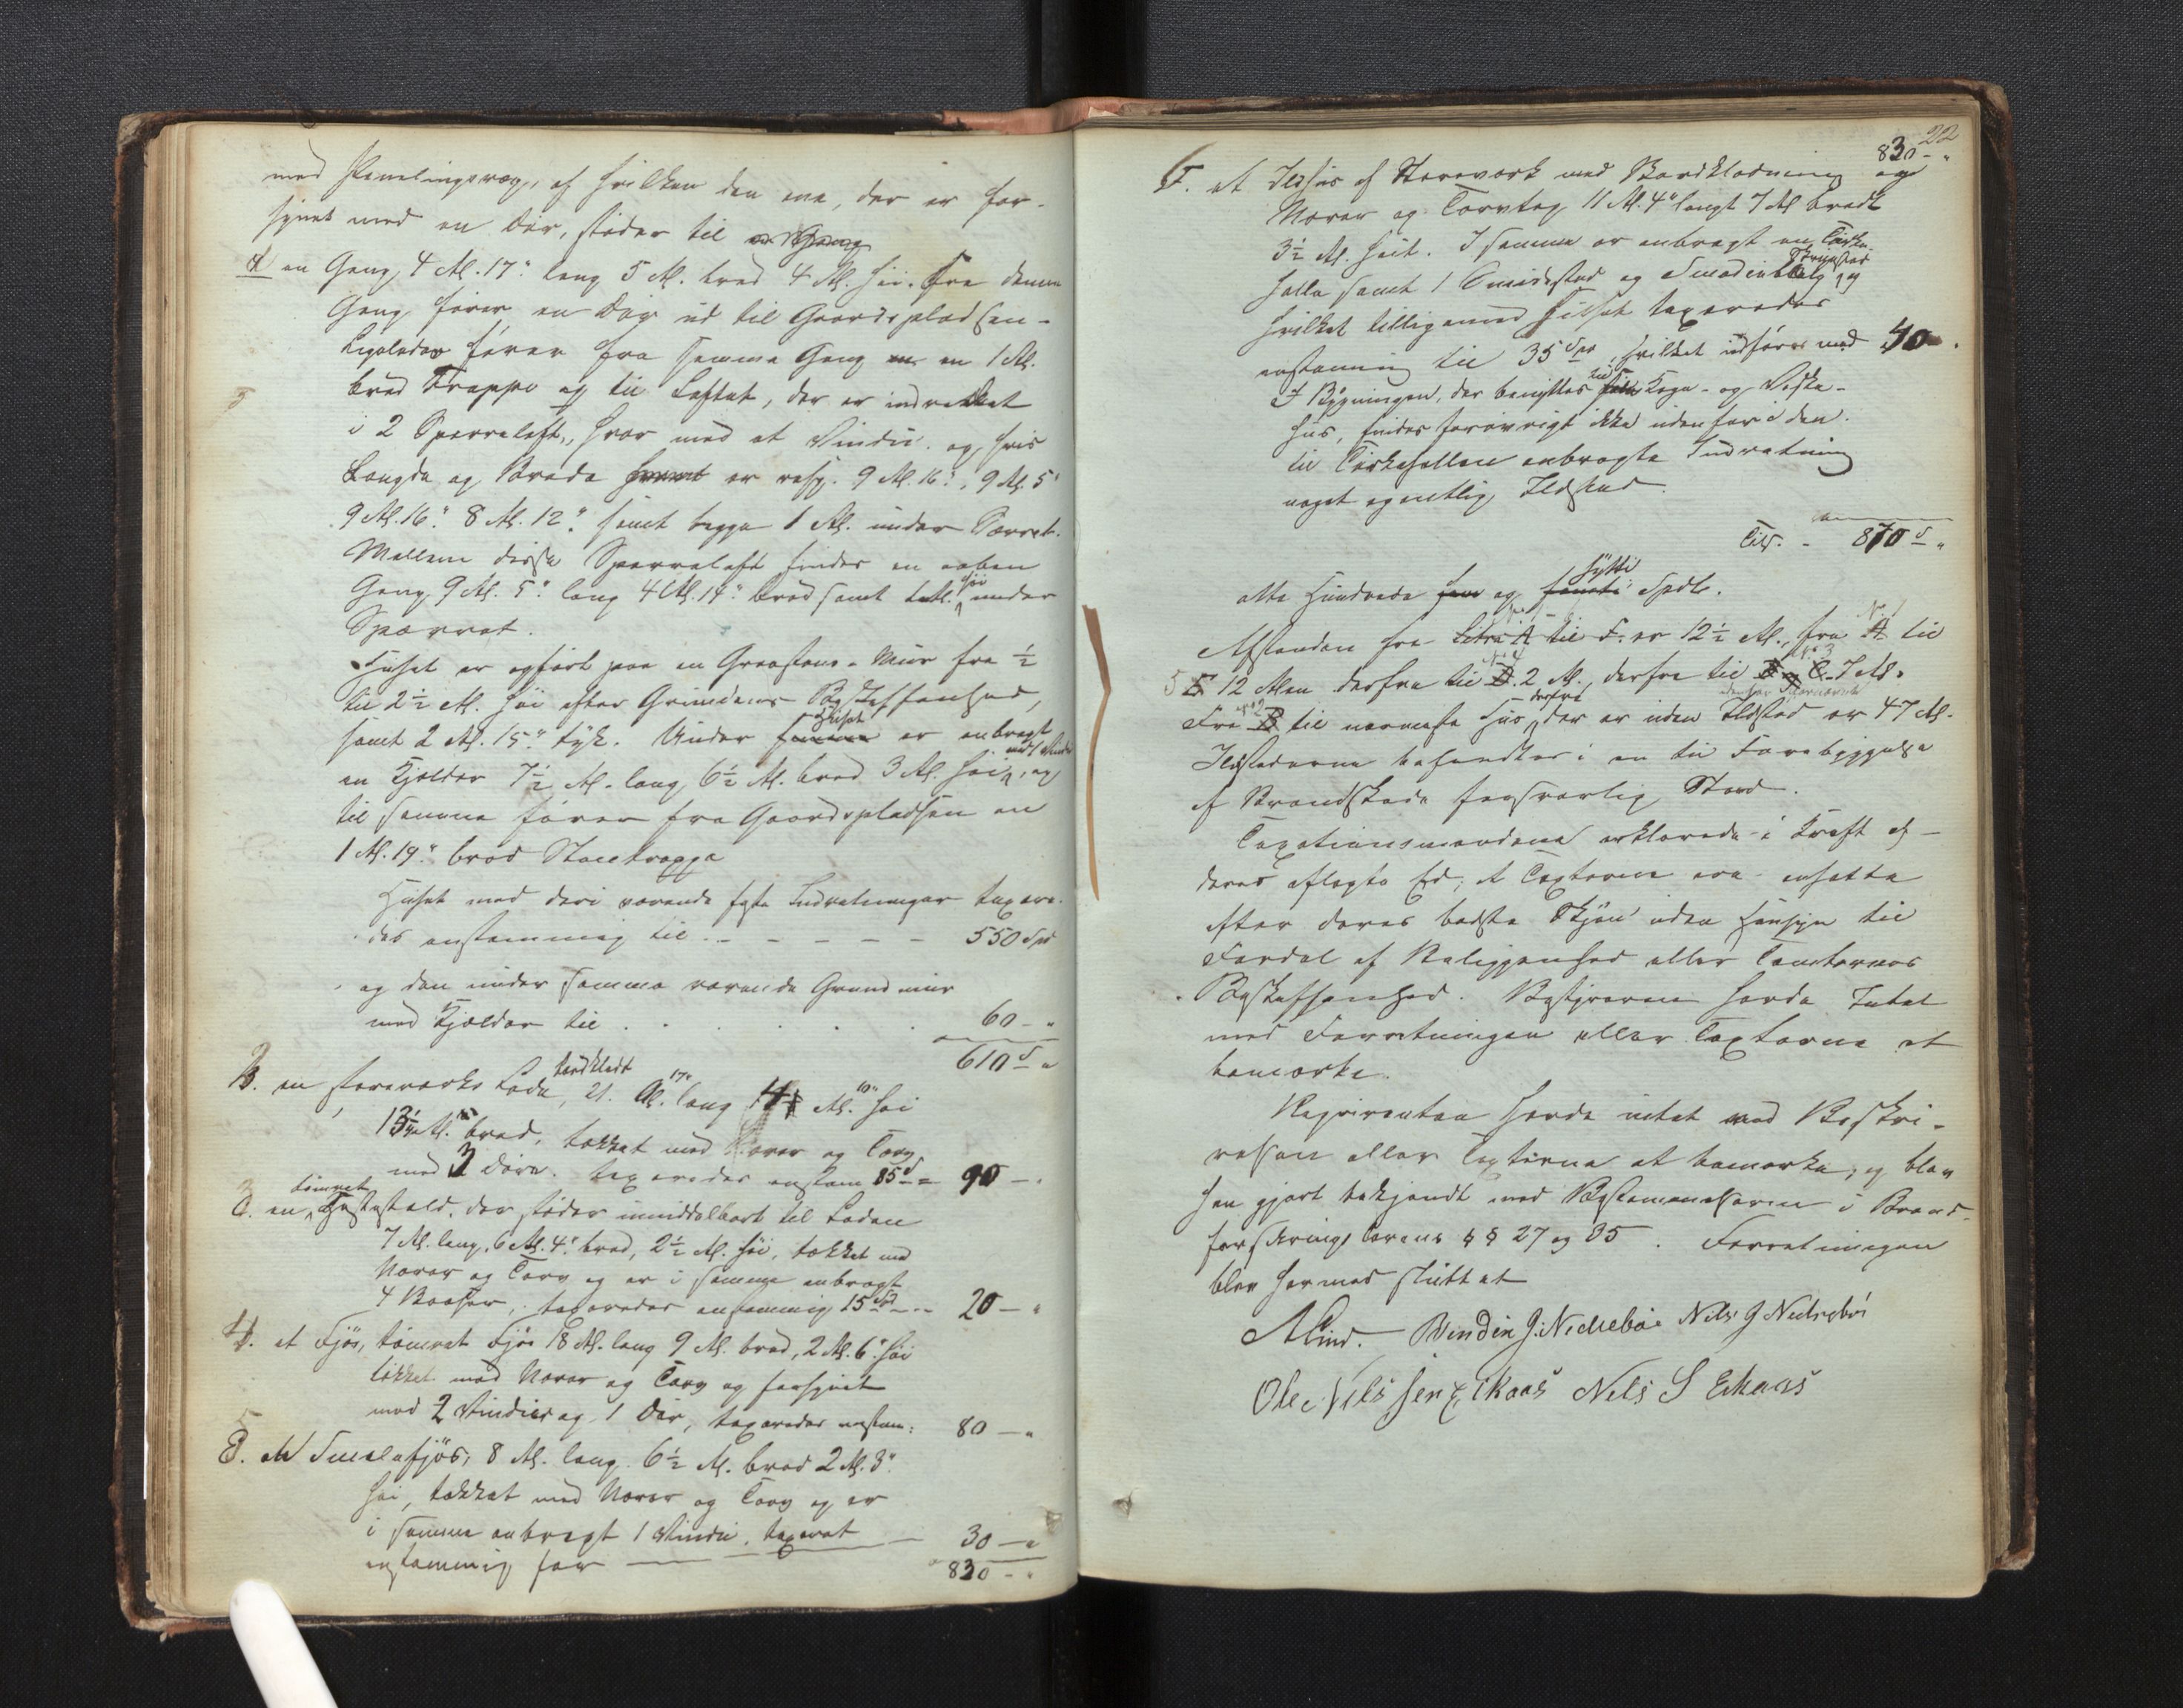 med Panelingsvæg, af hvilken den ene, der er for-
synet med en Dør, støder til en Gang
4 en Gang 4 Al. 17" lang 5 Al. bred 4 Al. høi. Fra denne
Gang fører en Dør ud til Gaardspladsen -
Ligeledes fører fra samme Gang en 1 Al.
bred Trappe op til Loftet, der er indrettet
i 2 Sperreloft, hver med et Vindu og hvis
Længde og Brede er resp. 9 Al. 16", 9 Al. 5"
9 Al. 16" 8 Al. 12" samt begge 1 Al. under Sperret.
Mellem disse Sperreloft findes en aaben
Gang 9 Al. 5" lang 4 Al. 14" bred samt høi under
Sperret.
Huset er opført paa en Graasteens-Muur fra ½
til 2½ Al. høi efter Grundens Beskaffenhed,
samt 2 Al. 15" tyk. Under Huset er anbragt
en Kjelder 7½ Al. lang 6½ Al. bred 3 Al. høi, med 1 Vindu, og
til samme fører fra Gaardspladsen en
1 Al. 19" bred Steentrappe
Huset med deri værende faste Indretninger taxere-
des enstemmig til - - - - - 550 Spd
og den under samme værende Grundmuur
med Kjelder til . . . . . 60 - "
610 - "
B. en Stavværks Lade, bordklædt 21 Al. 17" lang Al. 10" høi
13½ Al. bred, tækket med Næver og Torv
med 3 Døre. taxeredes enstem 85 - 90 - "
3
C. en tømret Hestestald, der støder umiddelbart til Laden
7 Al. lang, 6 Al. 4" bred, 2½ Al. høi, tækket med
Næver og Torv og er i samme anbragt
4 Baaser, taxeredes enstemmig 15 - 20 - "
4. et Fjøs, tømret Fjøs 18 Al. lang 9 Al. bred, 2 Al. 6" høi
tækket med Næver og Torv og forsynet
med 2 Vinduer og 1 Dør, taxeredes enstem: 80 - "
5. et Smalefjøs, 8 Al. lang 6½ Al. bred 2 Al. 3"
høi, tækket med Næver og Torv og er
i samme anbragt 1 Vindu, taxeret
enstemmig for - - 30 - "
830 - "
22
830 - "
F. et Ildhus af Stavværk med Bordklædning og
Næver og Torvtag 11 Al. 4" langt 7 Al. bredt
3½ Al. høit. I samme er anbragt en Tørke-
helle samt 1 Smiested og Smedeblæsebælg, og
hvilket tilligemed Huset taxeredes
enstemmig til 35 Spd, hvilket udføres med 40 - .
I Bygningen, der benyttes til Koge- og Vaske-
huus, findes forøvrigt ikke udenfor den
til Tørkehellen anbragte Indretning
noget egentlig Ildsted.
Tils. - 870 - "
otte Hundrede og sytti Spdlr.
Afstanden fra Litra A til F. er 12½ Al., fra A til
5 E 12 Alen derfra til D. 2 Al., derfra til C. 7 Al.
Fra B til nærmeste Huus derfra, der er uden Ildsted er 47 Al.
Ildstederne befandtes i en til Forebyggelse
af Brandskade forsvarlig Stand.
Taxationsmændene erklærede i Kraft af
deres aflagte Ed, at Taxterne ere ansatte
efter deres bedste Skjøn uden Hensyn til
Fordel af Beliggenhed eller Tomternes
Beskaffenhed. Bestyreren havde Intet
med Forretningen eller Taxterne at
bemærke.
Reqvirenten havde intet ved Beskri-
velsen eller Taxterne at bemærke, og blev
han gjort bekjendt med Bestemmelserne i Brand-
forsikrings Lovens §§ 27 og 35. Forretningen
blev hermed sluttet
A Lind. Bendix J. Nedrebøe Nils J Nedrebøe
Ole Nilssen Eikaas Nels S Eikaas